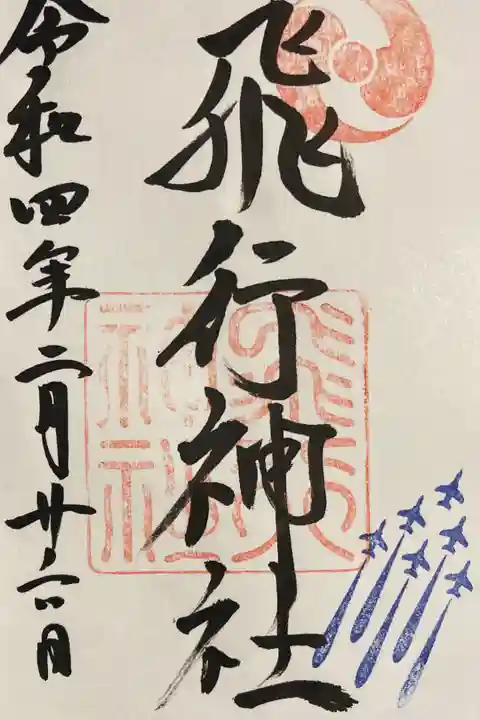 飛行神社
令和四年二月廿六日
飛行
神社